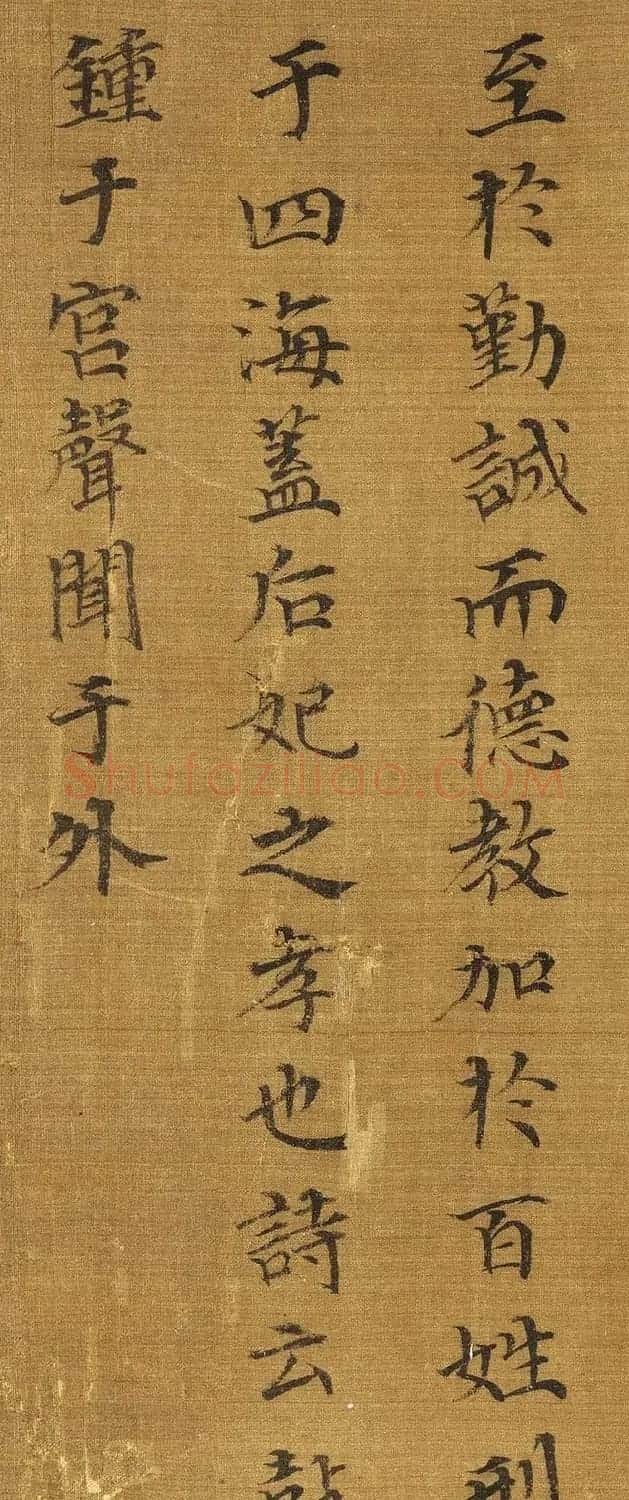 至於勤誠而德教加於百姓刑
于四海蓋后妃之孝也詩云鼓
鍾于宮聲聞于外
Shufaziliao.COM